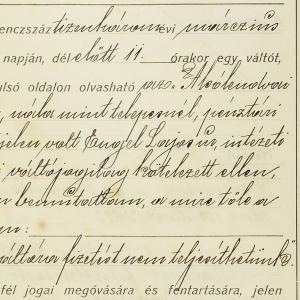 encszáz tizenhárom évi március
napján, dél előtt 11 órakor egy váltót,
ulsó oldalon olvasható az „Alsólendvai
nála mint telepesnél, pénztári
jelen volt Engel Lajos úr, intézeti
váltójogilag kötelezett ellen,
bemutattam, a mire tőle a
en:
váltóra fizetést nem teljesíthetünk"
fél jogai megóvására és fentartására, jelen